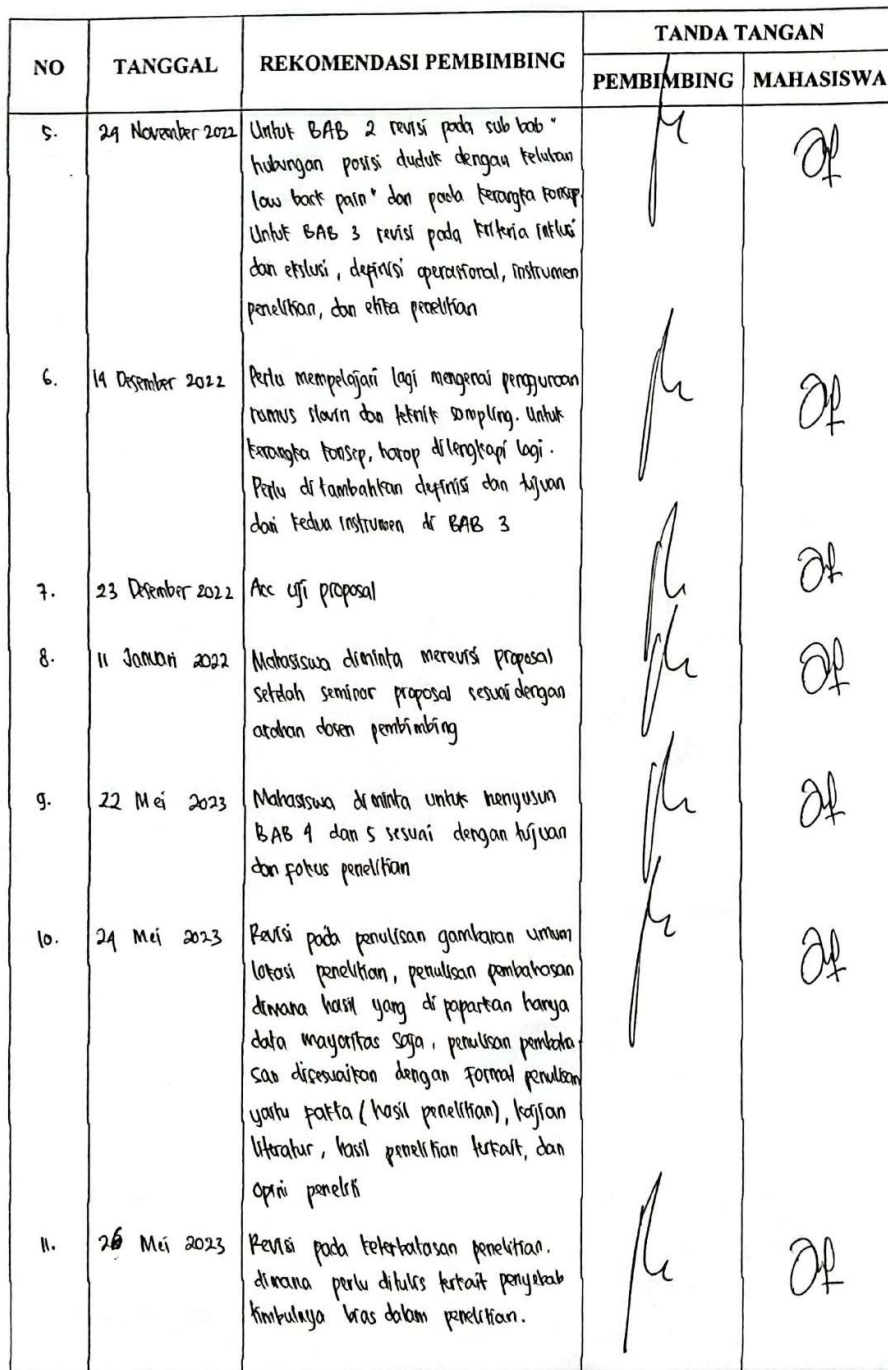 NO TANGGAL REKOMENDASI PEMBIMBING TANDA TANGAN
PEMBIMBING MAHASISWA
5. 24 November 2022 Untuk BAB 2 revisi pada sub bab "
hubungan posisi duduk dengan keluhan
low back pain" dan pada kerangka konsep.
Untuk BAB 3 revisi pada kriteria inklusi
dan ekslusi, definisi operasional, instrumen
penelitian, dan etika penelitian
6. 14 Desember 2022 Perlu mempelajari lagi mengenai penggunaan
rumus slovin dan teknik sampling. Untuk
kerangka konsep, harap dilengkapi lagi.
Perlu di tambahkan definisi dan tujuan
dari kedua instrumen di BAB 3
7. 23 Desember 2022 Acc uji proposal
8. 11 Januari 2022 Mahasiswa diminta merevisi proposal
setelah seminar proposal sesuai dengan
arahan dosen pembimbing
9. 22 Mei 2023 Mahasiswa diminta untuk menyusun
BAB 4 dan 5 sesuai dengan tujuan
dan fokus penelitian
10. 24 Mei 2023 Revisi pada penulisan gambaran umum
lokasi penelitian, penulisan pembahasan
dimana hasil yang di paparkan hanya
data mayoritas saja, penulisan pembaha
san disesuaikan dengan format penulisan
yaitu fakta (hasil penelitian), kajian
literatur, hasil penelitian terkait, dan
opini peneliti
11. 26 Mei 2023 Revisi pada keterbatasan penelitian.
dimana perlu ditulis terkait penyebab
timbulnya bias dalam penelitian.